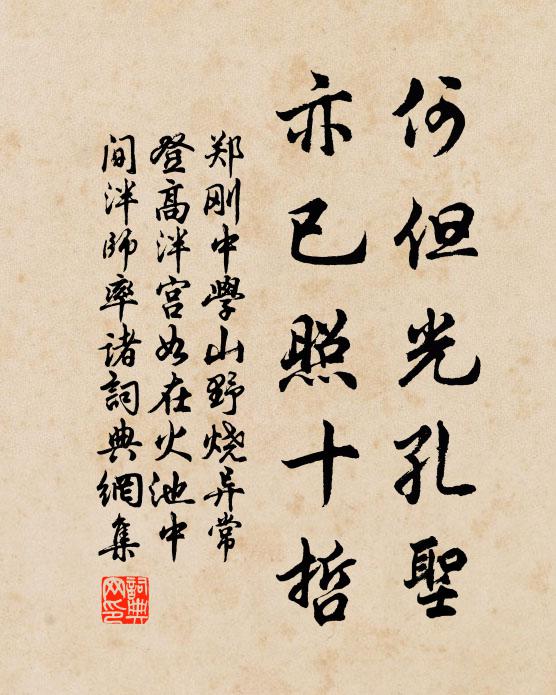 何但光孔聖
亦已照十哲
郑刚中學山野烧异常
登高泮宮如在火池中
间泮师率诸詞典網集
詞典网印